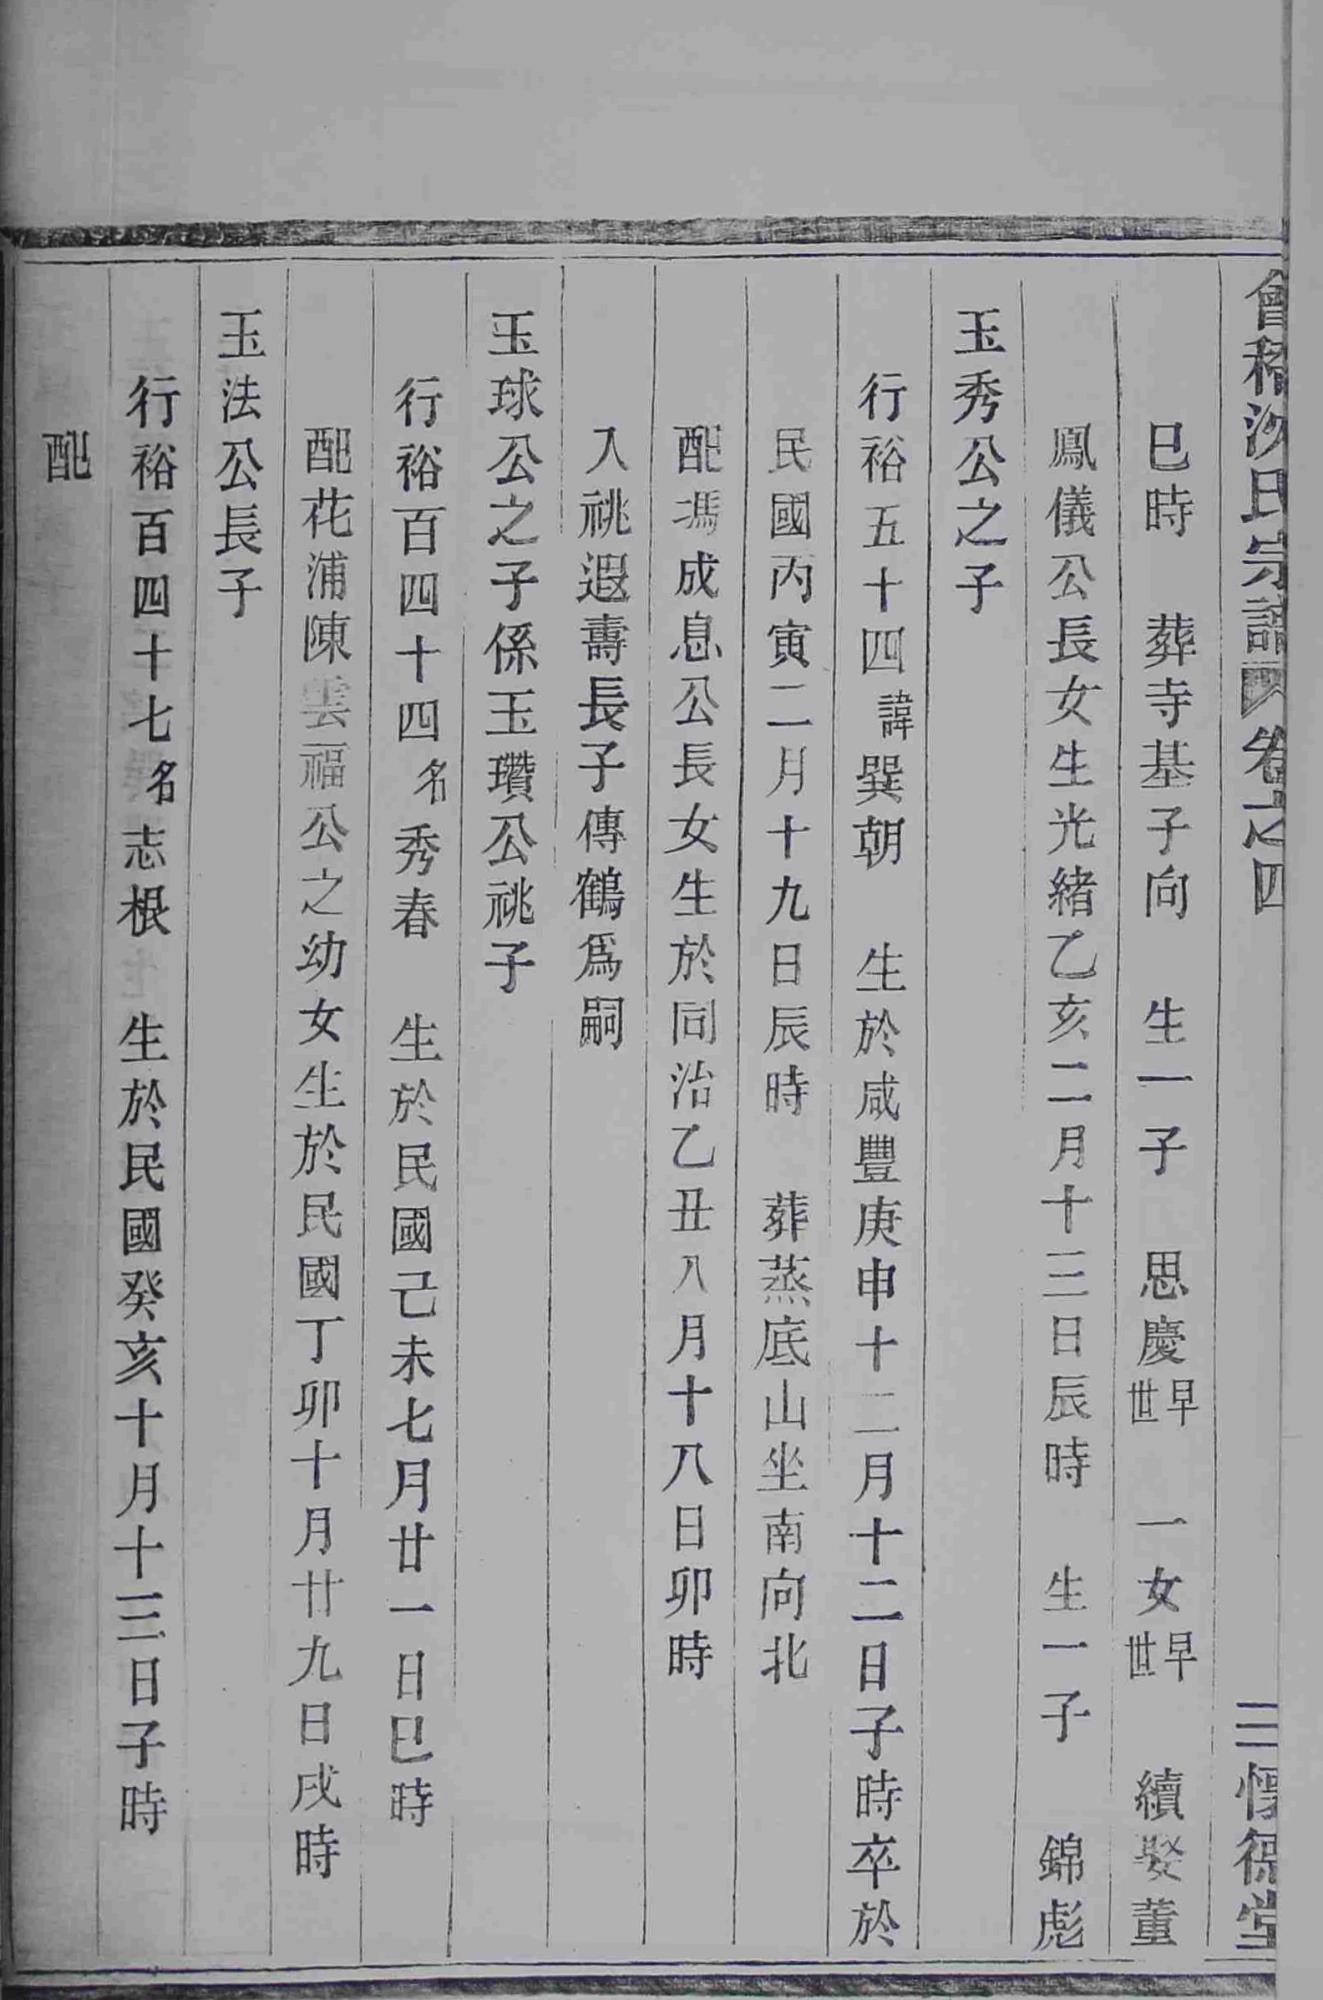 會稽沈氏宗譜 卷之四 二 懷德堂
巳時 葬寺基子向 生一子 思慶早世 一女早世 續娶董
鳳儀公長女生光緒乙亥二月十三日辰時 生一子 錦彪
玉秀公之子
行裕五十四諱巽朝 生於咸豐庚申十二月十二日子時卒於
民國丙寅二月十九日辰時 葬蒸底山坐南向北
配馮成息公長女生於同治乙丑八月十八日卯時
入祧遐壽長子傳鶴為嗣
玉球公之子係玉瓚公祧子
行裕百四十四名秀春 生於民國己未七月廿一日巳時
配花浦陳雲福公之幼女生於民國丁卯十月廿九日戌時
玉法公長子
行裕百四十七名志根 生於民國癸亥十月十三日子時
配